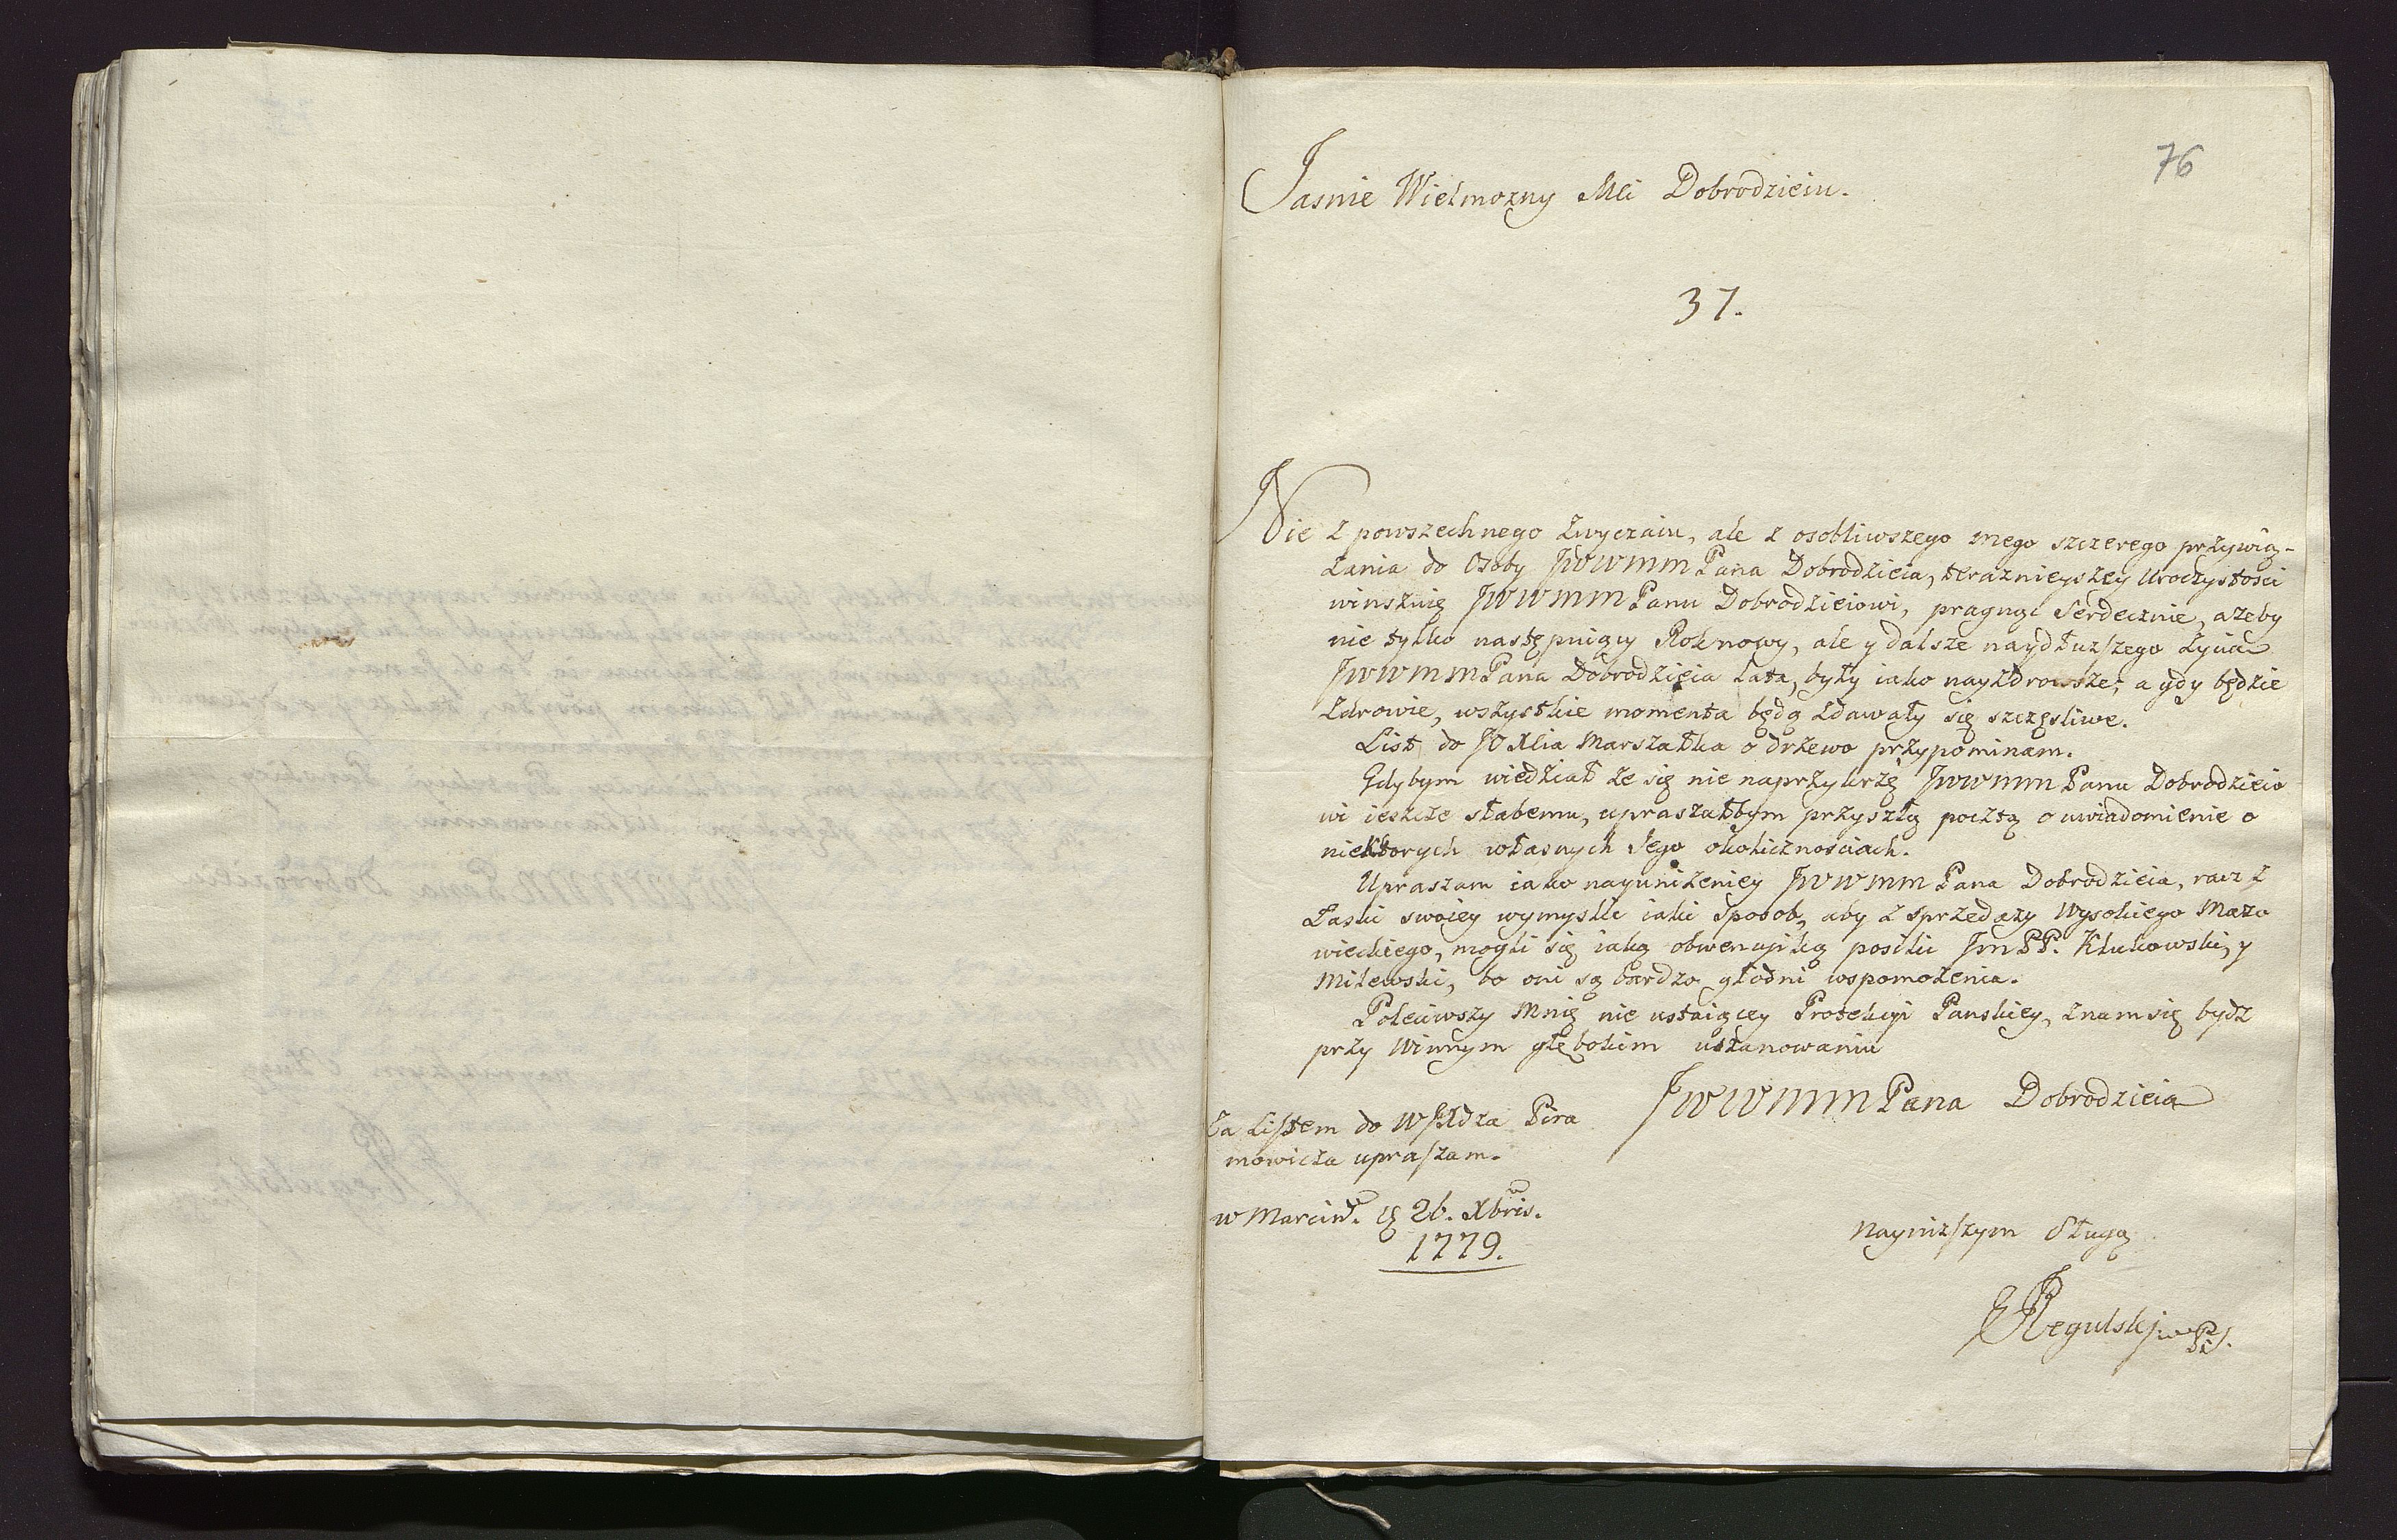 76
Jasnie Wielmozny Mci Dobrodzieiu.
37.
Nie z powszechnego zwyczaiu, ale z osobliwszego mego szczerego przywią-
zania do Osoby JWWMM Pana Dobrodzieia, teraznieyszey Uroczystosci
winszuię JWWMM Panu Dobrodzieiowi, pragnąc Serdecznie, azeby
nie tylko następuiący Rok nowy, ale y dalsze naydłuzszego zycia
JWWMM Pana Dobrodzieia lata, były iako nayzdrowsze; a gdy będzie
zdrowie, wszystkie momenta będą zdawały się szczęsliwe.
List do JO Xcia Marszałka o drzewo przypominam.
Gdybym wiedział ze się nie naprzykrzę JWWMM Panu Dobrodzieio
wi ieszcze słabemu, upraszałbym przyszłą pocztą o uwiadomienie o
niektorych własnych Jego okolicznosciach.
Upraszam iako nayunizeniey JWWMM Pana Dobrodzieia, racz z
Łaski swoiey wymyslic iaki sposob, aby z sprzedazy Wysokiego Mazo
wieckiego, mogli się iaką obwencyiką posilic Jm PP. Kłukowski, y
Milewski, bo oni są bardzo głodni wspomozenia.
Poleciwszy Mnię nie ustaiącey Protekcyi Panskiey, znam się bydz
przy Winnym głębokim uszanowaniu
JWWMM Pana Dobrodzieia
Za Listem do W JXdza Pira
mowicza upraszam.
w Marcin. d 26. Xbris.
1779.
Nayniższym Sługą
Regulski